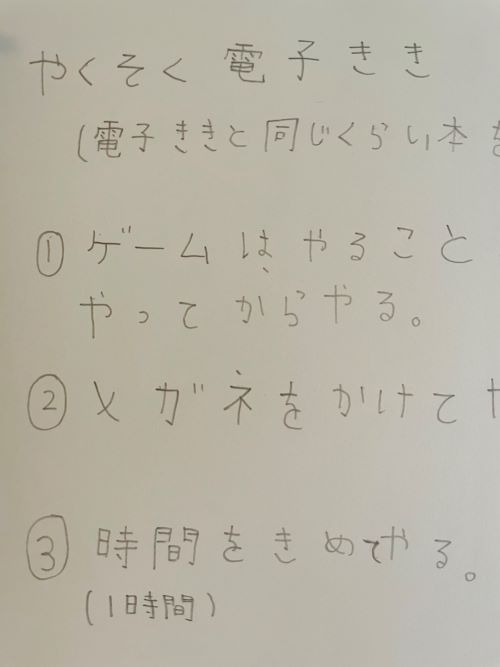 やくそく 電子きき
(電子ききと同じくらい本を
① ゲームは、やること
やってからやる。
② メガネをかけてや
③ 時間をきめてやる。
(1時間)